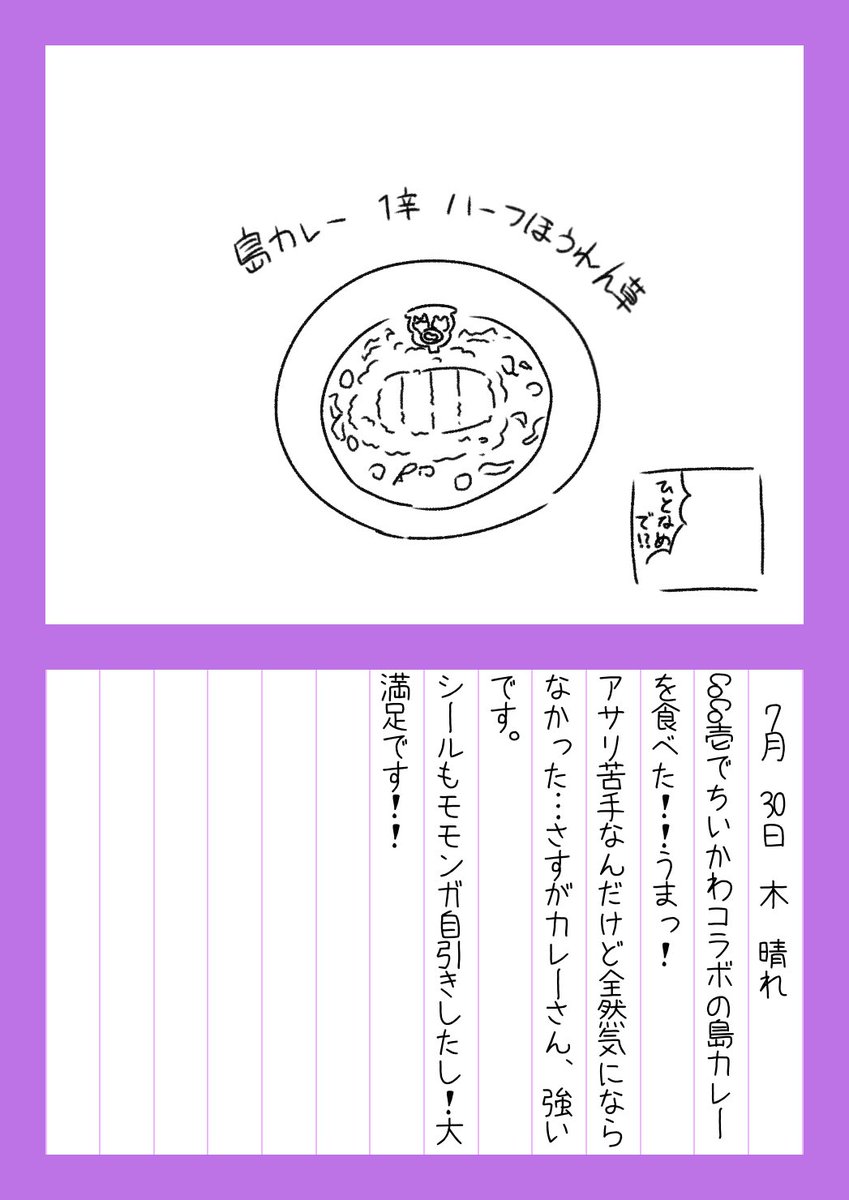 島カレー 1辛 ハーフほうれん草
ひとなめ
で!?
7月 30日 木 晴れ
CoCo壱でちいかわコラボの島カレー
を食べた!!うまっ!
アサリ苦手なんだけど全然気になら
なかった…さすがカレーさん、強い
です。
シールもモモンガ自引きしたし!大
満足です!!